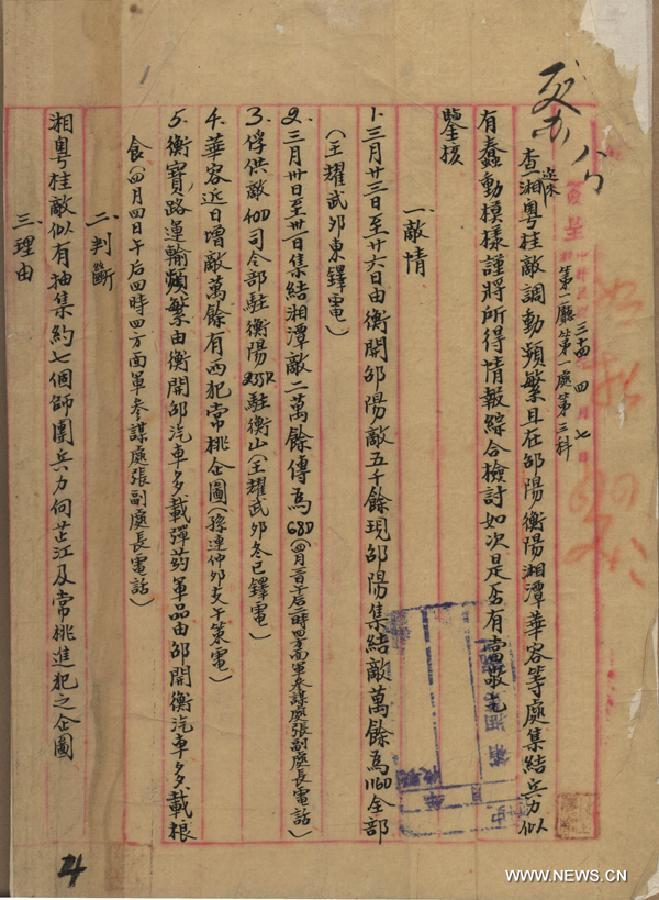 簽呈
三十四 四 月 七 日
第一廳第一處第三科
查近來湘粵桂敵調動頻繁且在邵陽衡陽湘潭華容等處集結兵力似
有蠢動模樣謹將所得情報綜合檢討如次是否有當敬乞
鑒核
一、敵情
1.三月卅三日至廿六日由衡開邵陽敵五千餘現邵陽集結敵萬餘為116D全部
(王耀武卯東鐸電)
2.三月卅日至卅一日集結湘潭敵二萬餘傳為68D(四月二日午后二時四方面軍參謀處張副處長電話)
3.俘供敵40D司令部駐衡陽235R駐衡山(王耀武卯冬巳鐸電)
4.華容近日增敵萬餘有西犯常桃企圖(孫連仲卯支午策電)
5.衡寶路運輸頻繁由衡開邵汽車多載彈药軍品由邵開衡汽車多載粮
食(四月四日午后四時四方面軍參謀處張副處長電話)
二、判斷
湘粵桂敵似有抽集約七個師團兵力伺芷江及常桃進犯之企圖
三、理由
4
www.NEWS.CN